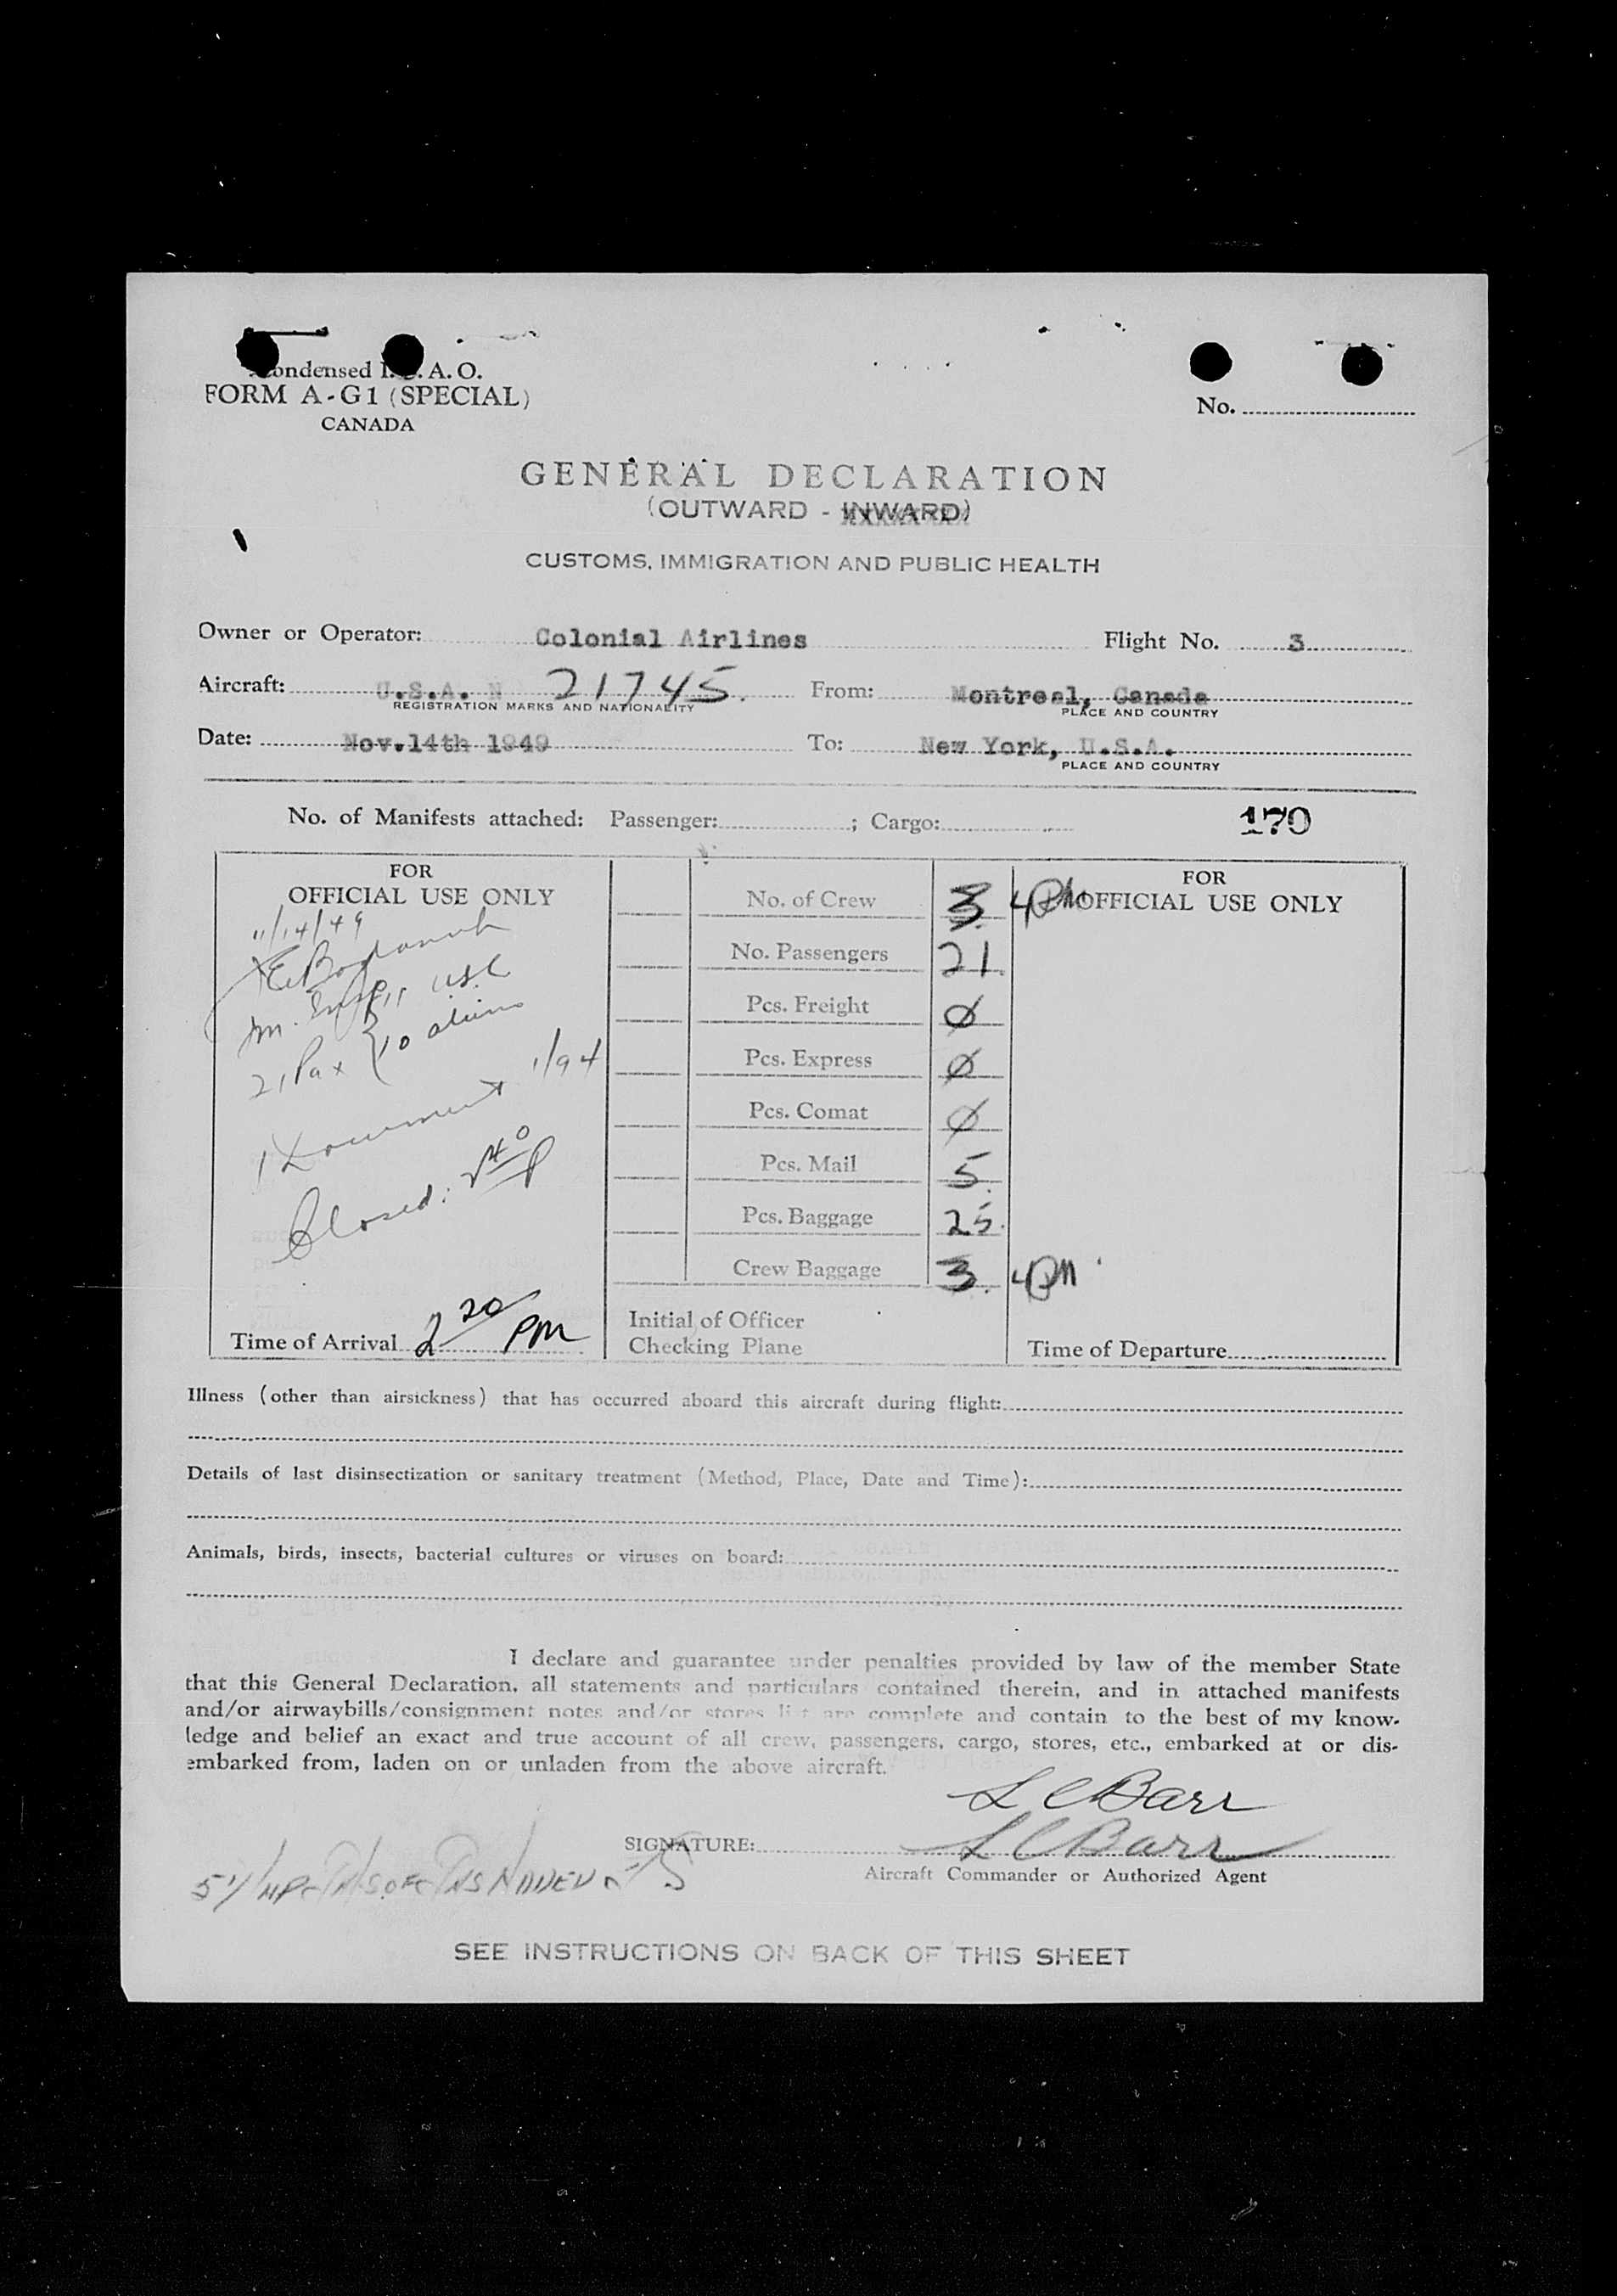 Condensed I.C.A.O.
FORM A-G1 (SPECIAL)
CANADA
No.
GENERAL DECLARATION
(OUTWARD - INWARD)
CUSTOMS, IMMIGRATION AND PUBLIC HEALTH
Owner or Operator: Colonial Airlines Flight No. 3
Aircraft: U.S.A. N 21745. From: Montreal, Canada
REGISTRATION MARKS AND NATIONALITY PLACE AND COUNTRY
Date: Nov.14th 1949 To: New York, U.S.A.
PLACE AND COUNTRY
No. of Manifests attached: Passenger: ; Cargo: 170
FOR
OFFICIAL USE ONLY
11/14/49
Im. Insp. 11 USC
21 Pax { 10 aliens
1 Document 1/94
Closed: 2 40 P
Time of Arrival 2 20 PM
No. of Crew 3
No. Passengers 21.
Pcs. Freight Ø
Pcs. Express Ø
Pcs. Comat Ø
Pcs. Mail 5.
Pcs. Baggage 25.
Crew Baggage 3.
Initial of Officer
Checking Plane
FOR
OFFICIAL USE ONLY
Time of Departure
Illness (other than airsickness) that has occurred aboard this aircraft during flight:
Details of last disinsectization or sanitary treatment (Method, Place, Date and Time):
Animals, birds, insects, bacterial cultures or viruses on board:
I declare and guarantee under penalties provided by law of the member State
that this General Declaration, all statements and particulars contained therein, and in attached manifests
and/or airwaybills/consignment notes and/or stores list are complete and contain to the best of my know-
ledge and belief an exact and true account of all crew, passengers, cargo, stores, etc., embarked at or dis-
embarked from, laden on or unladen from the above aircraft.
L C Barr
SIGNATURE: L C Barr
Aircraft Commander or Authorized Agent
SEE INSTRUCTIONS ON BACK OF THIS SHEET